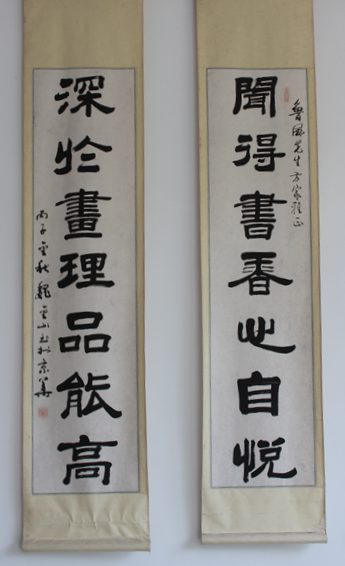 聞得書香心自悦
魯風先生方家雅正
深於畫理品能高
丙子 秋魏 山书於京華